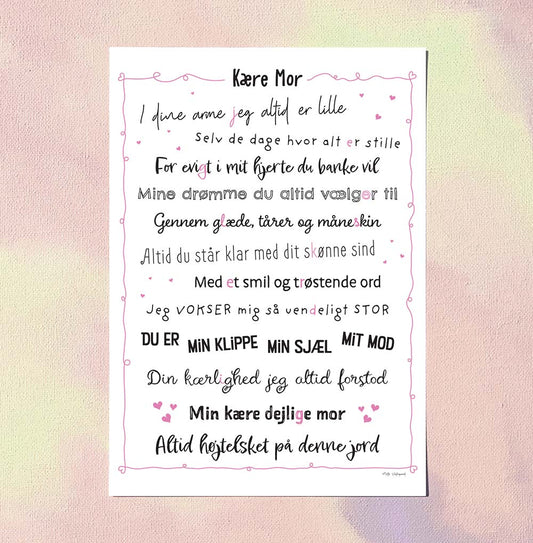 Kære Mor
I dine arme jeg altid er lille
Selv de dage hvor alt er stille
For evigt i mit hjerte du banke vil
Mine drømme du altid vælger til
Gennem glæde, tårer og måneskin
Altid du står klar med dit skønne sind
Med et smil og trøstende ord
Jeg VOKSER mig så uendeligt STOR
DU ER MIN KLIPPE MIN SJÆL MIT MOD
Din kærlighed jeg altid forstod
Min kære dejlige mor
Altid højtelsket på denne jord